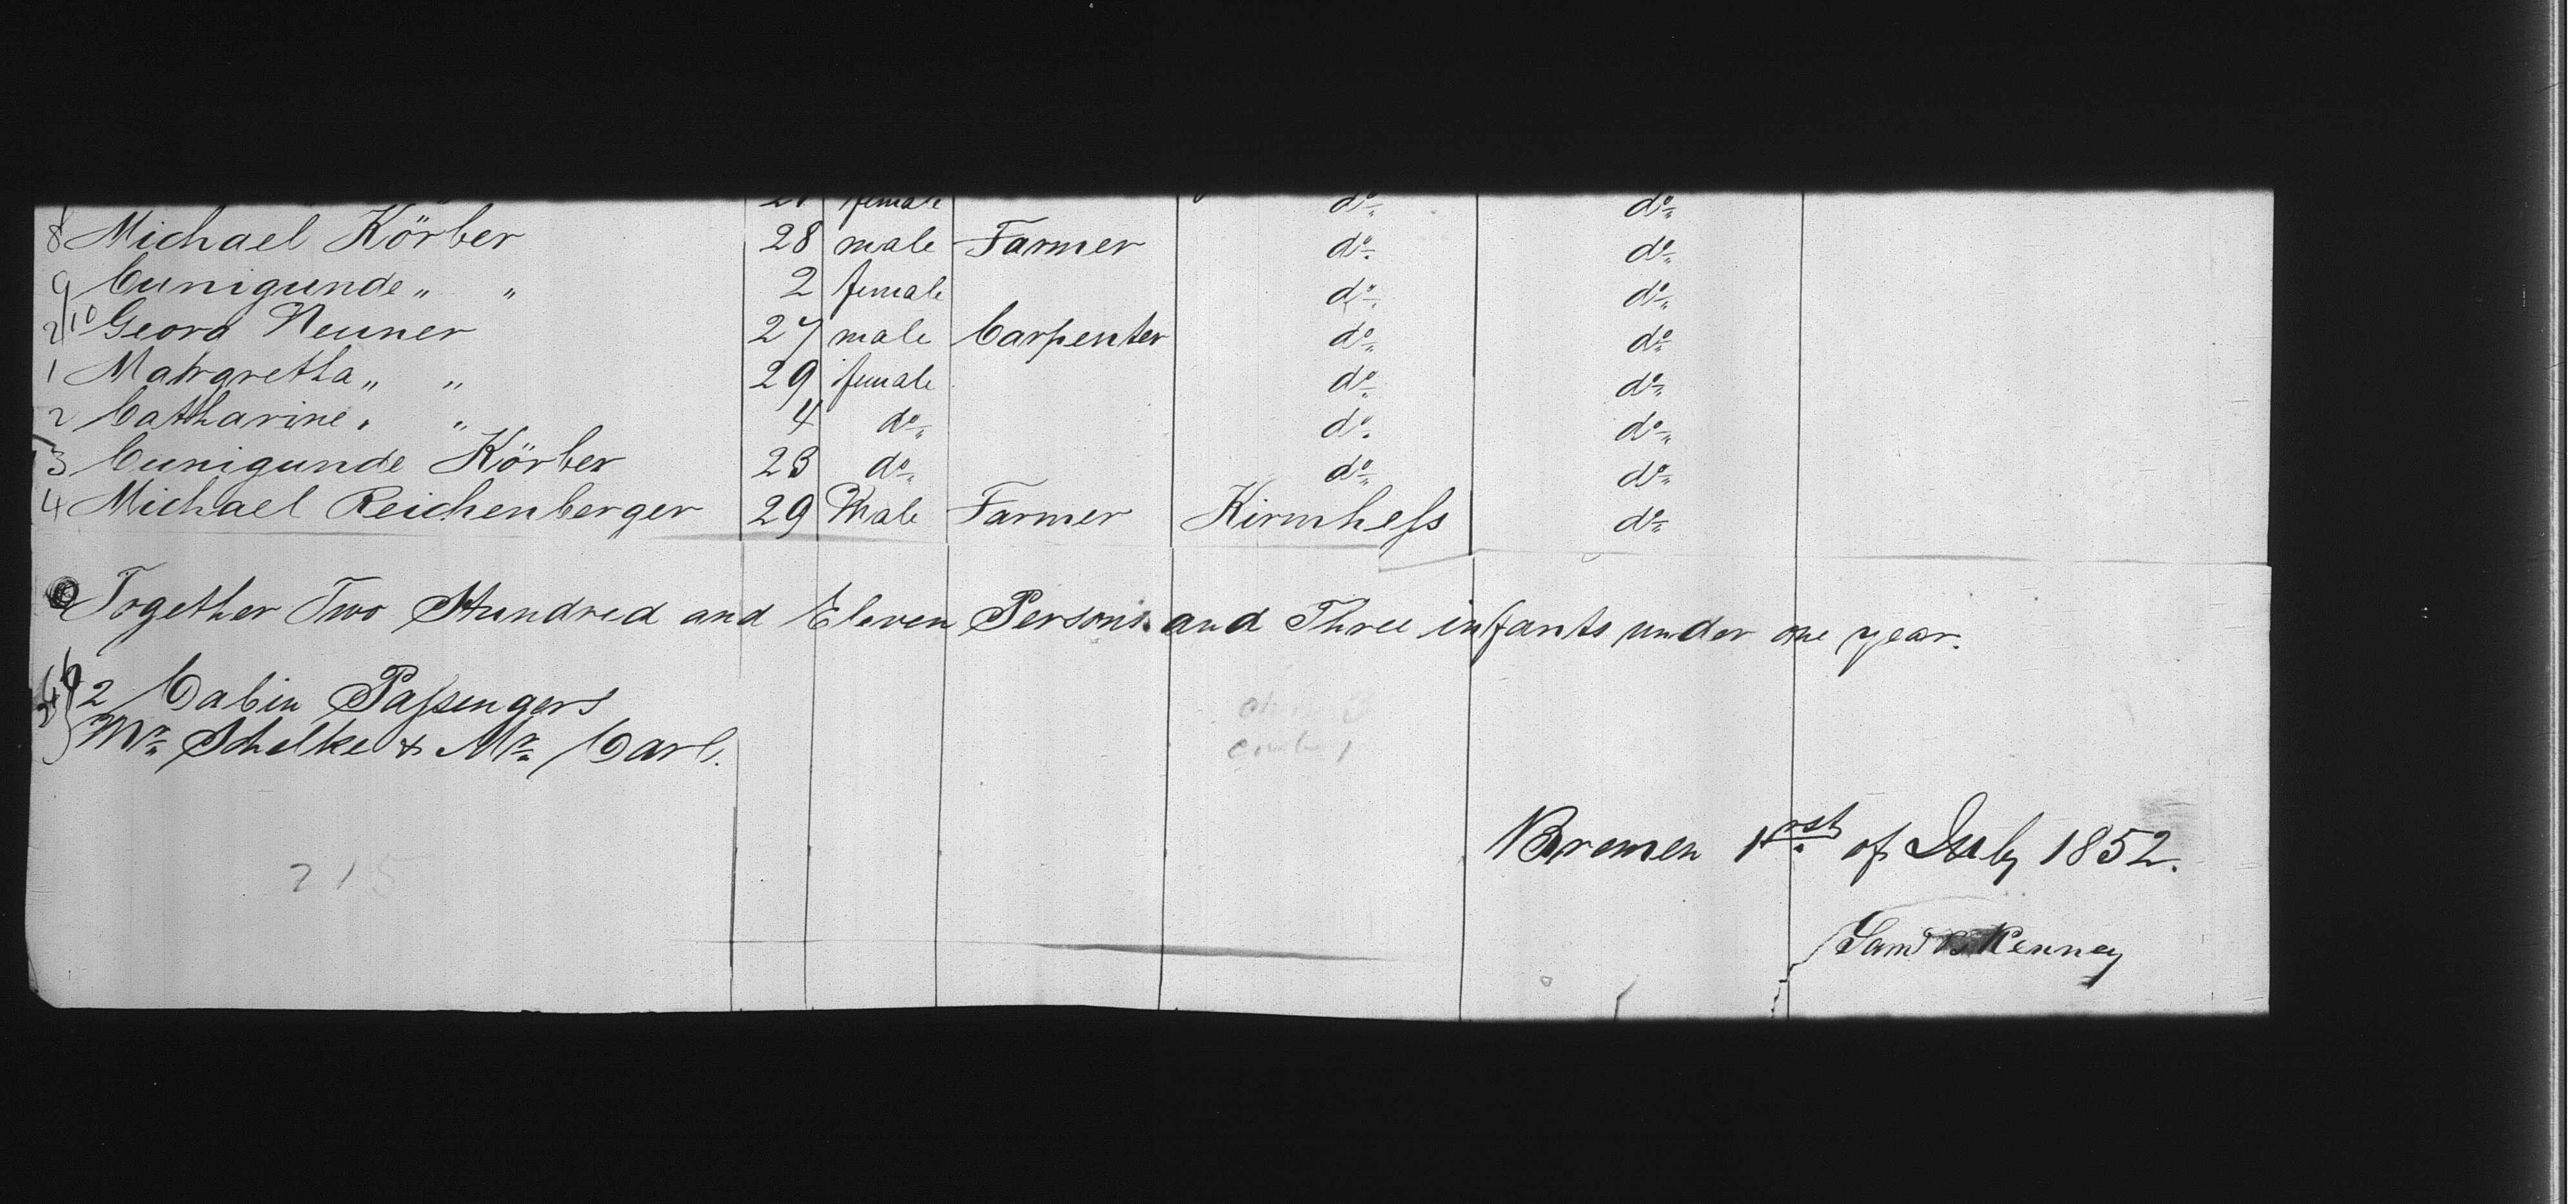 female do do
8 Michael Körber 28 male Farmer do do
9 Cunigunde " " 2 female do do
210 Georg Neuner 27 male Carpenter do do
1 Margretha " " 29 female do do
2 Catharine " " 4 do do do
3 Cunigunde Körber 23 do do do
4 Michael Reichenberger 29 Male Farmer Kirmheſs do
Together Two Hundred and Eleven Persons and Three infants under one year.
2 Cabin Paſsengers
Mr. Schelke & Mr. Carl.
215
Bremen 1rst of July 1852.
Saml B Kenney